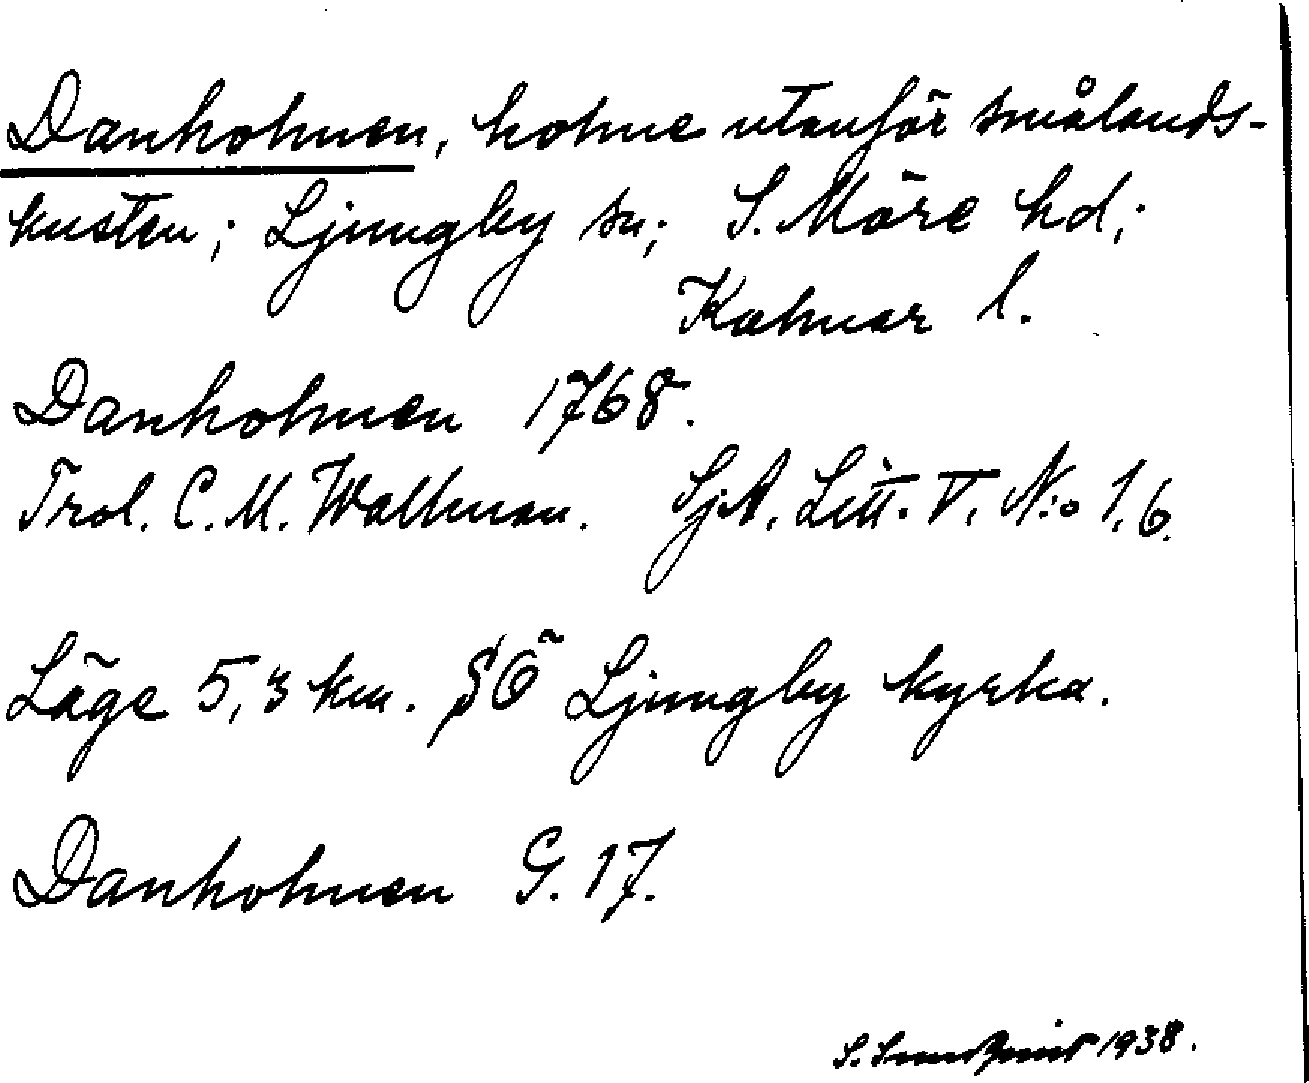 Danholmen, holme utanför smålands-
kusten; Ljungby sn; S. Möre hd;
Kalmar l.
Danholmen 1768.
Trol. C. M. Wallman. Sj.A. Litt. V. N:o 1,6.
Läge 5,3 km. SÖ Ljungby kyrka.
Danholmen G. 17.
S. Sundqvist 1938.